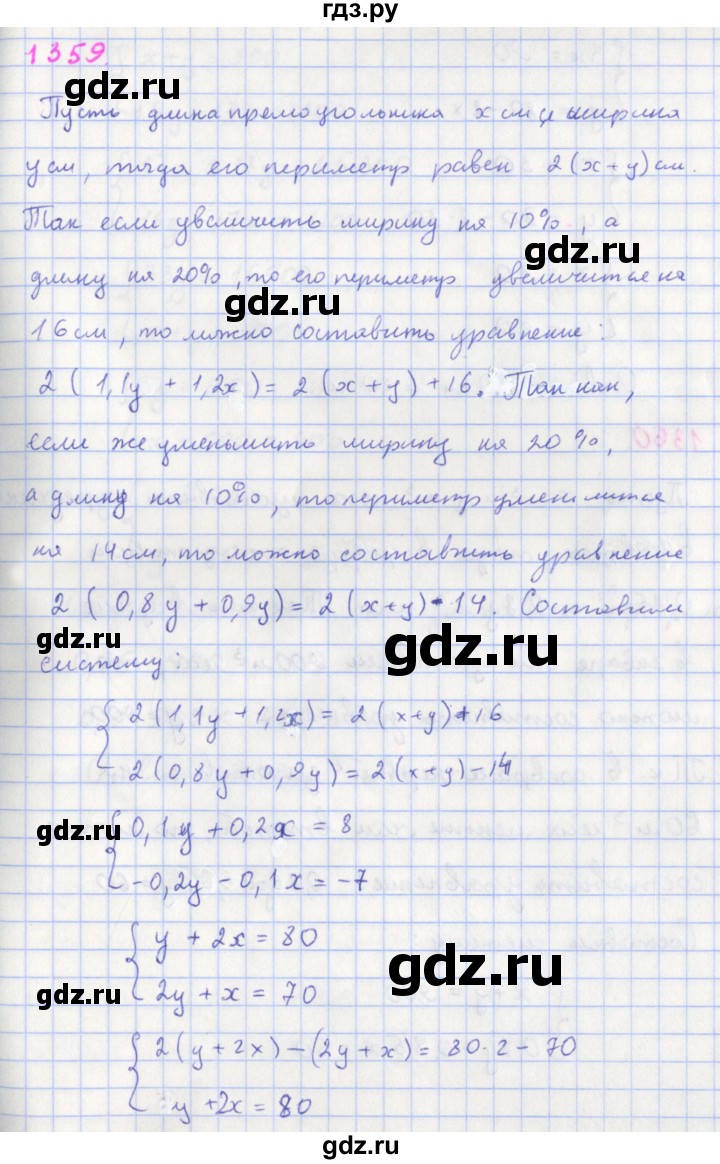 гдз.ру
1359
gdz.ru
Пусть длина прямоугольника x см, а ширина
y см, тогда его периметр равен 2(x+y) см.
gdz.ru
Так если увеличить ширину на 10%, а
длину на 20%, то его периметр увеличится на
gdz.ru
16 см, то можно составить уравнение:
gdz.ru
2(1,1y + 1,2x) = 2(x+y)+16. Так как,
если же уменьшить ширину на 20%,
gdz.ru
а длину на 10%, то периметр уменшится
на 14 см, то можно составить уравнение
2(0,8y + 0,9y) = 2(x+y)-14. Составим
gdz.ru
gdz.ru
систему:
2(1,1y+1,2x) = 2(x+y)+16
2(0,8y+0,9y) = 2(x+y)-14
gdz.ru
0,1y + 0,2x = 8
-0,2y - 0,1x = -7
y + 2x = 80
gdz.ru
gdz.ru
2y + x = 70
2(y+2x)-(2y+x) = 80·2-70
y+2x = 80
gdz.ru